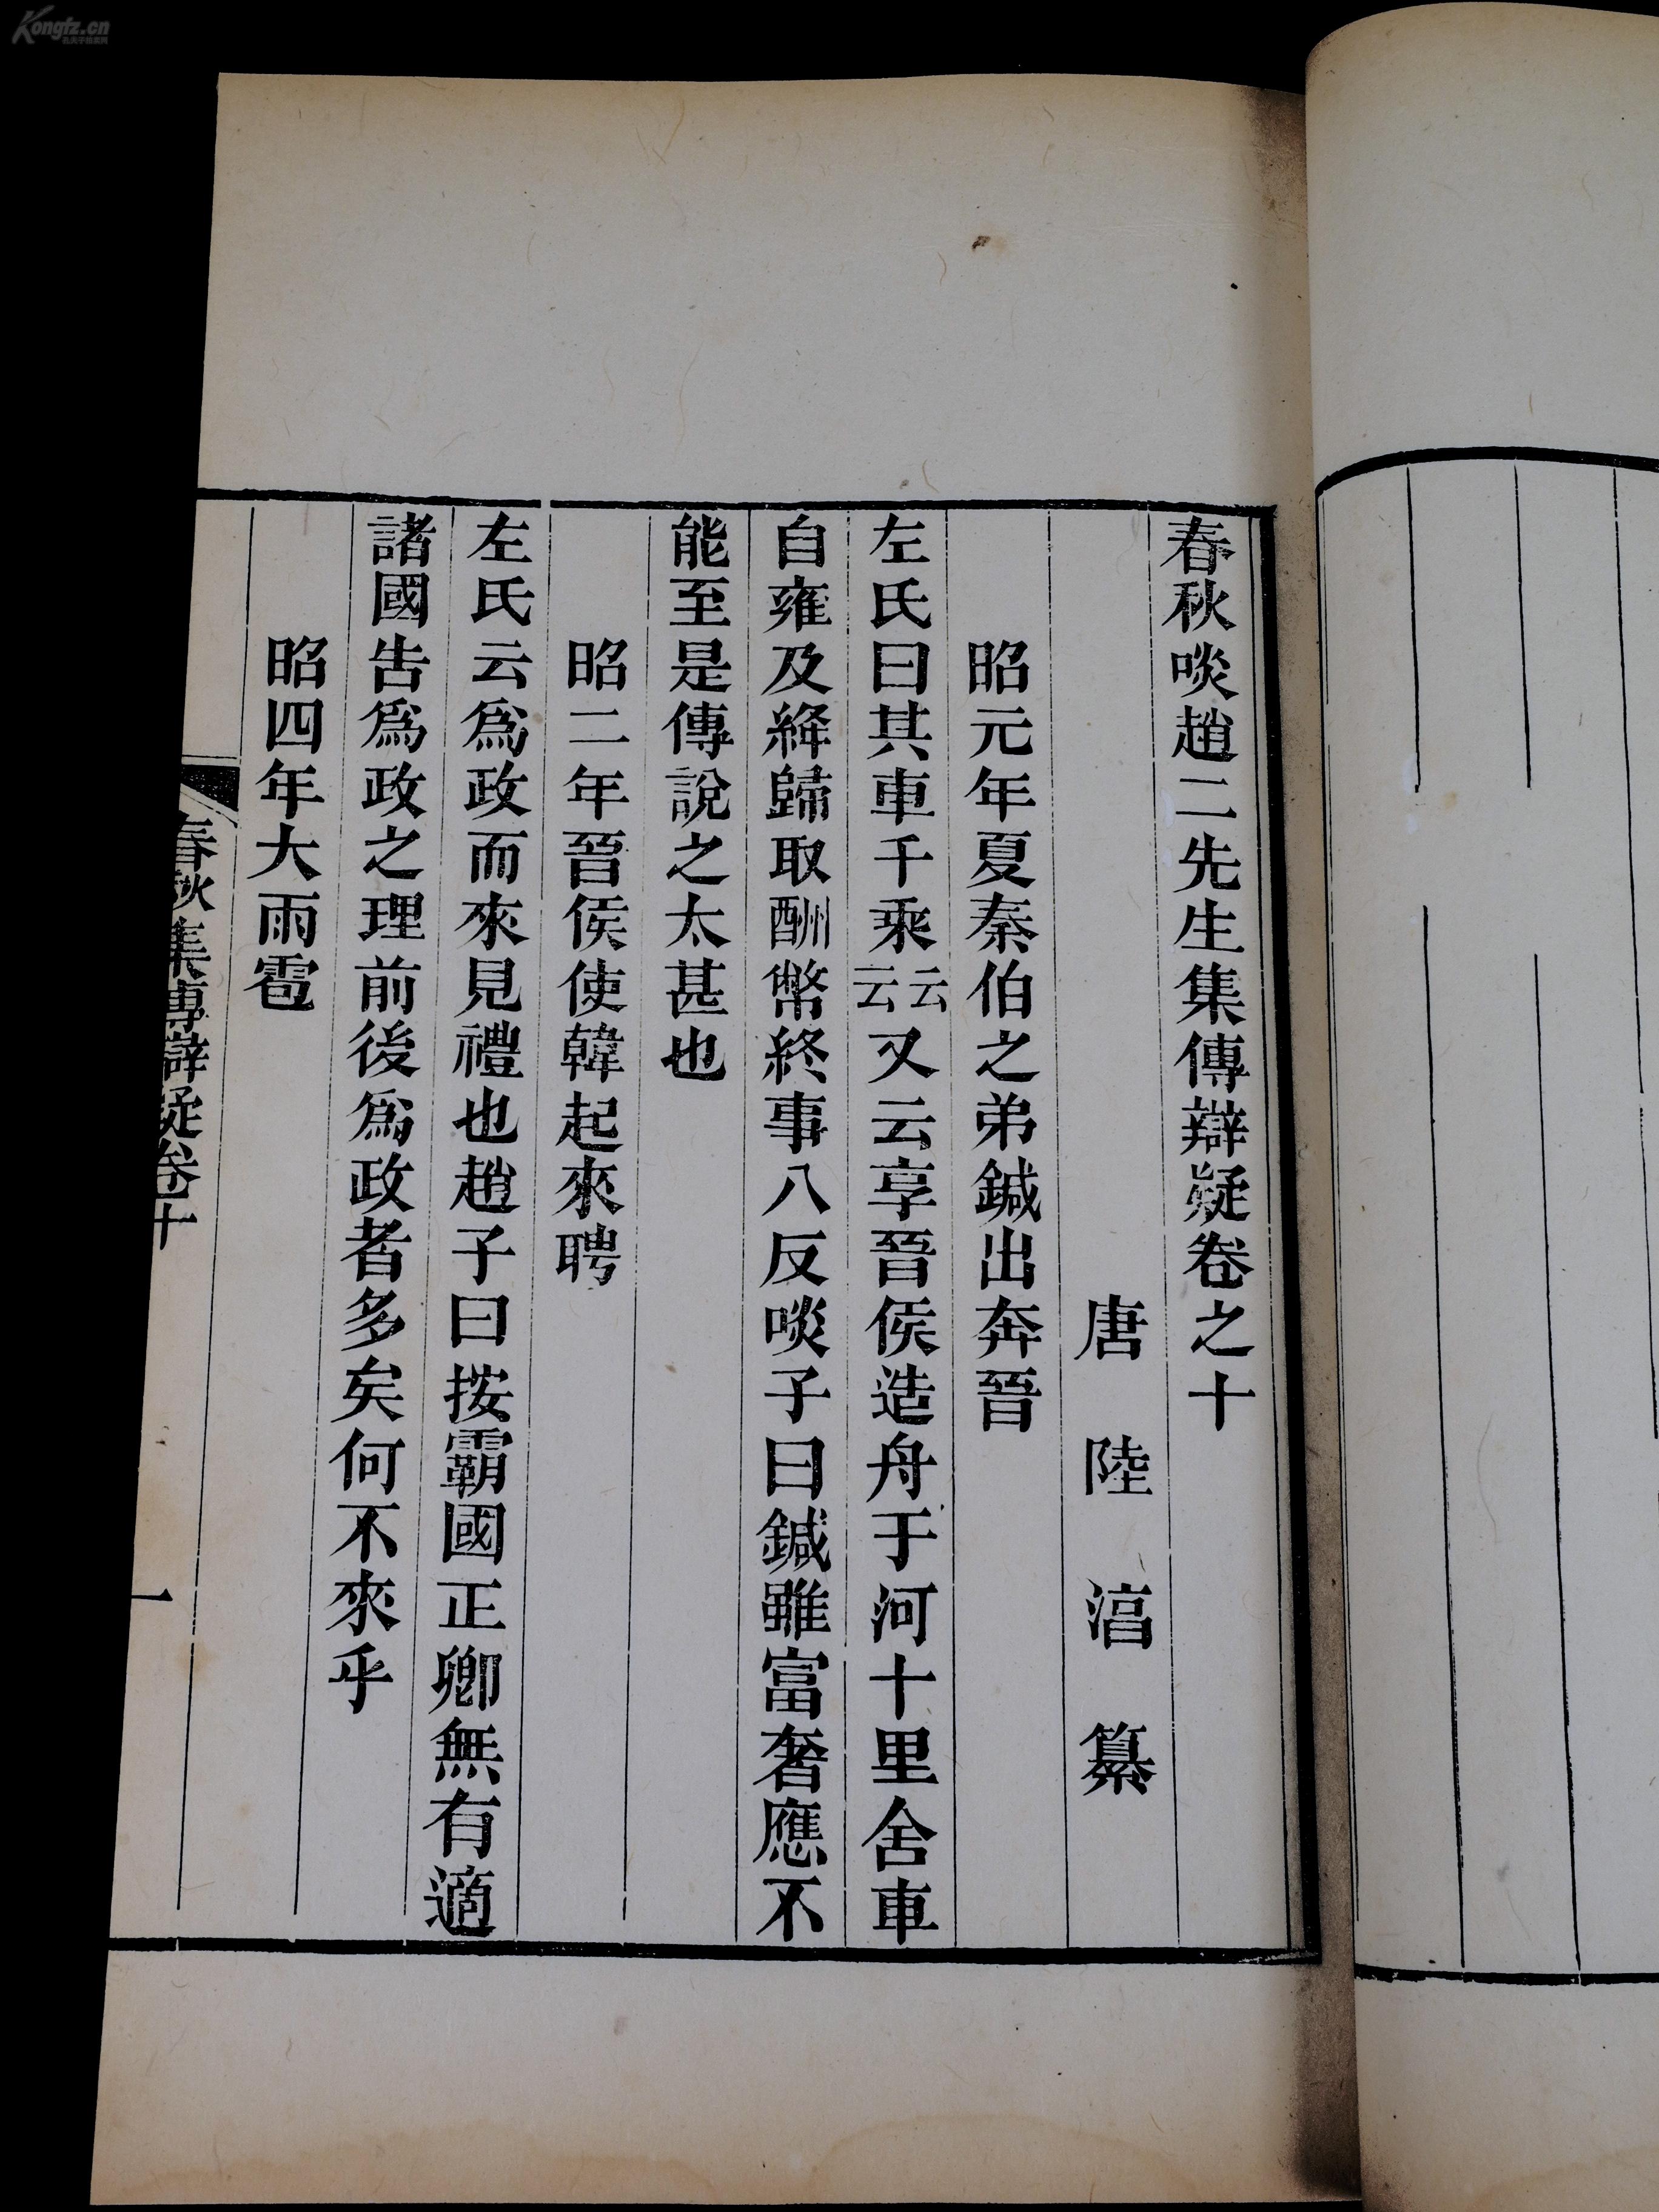 春秋啖趙二先生集傳辯疑卷之十
唐陸淳纂
昭元年夏秦伯之弟鍼出奔晉
左氏曰其車千乘云云又云享晉侯造舟于河十里舍車
自雍及絳歸取酬幣終事八反啖子曰鍼雖富奢應不
能至是傳說之太甚也
昭二年晉侯使韓起來聘
左氏云爲政而來見禮也趙子曰按霸國正卿無有適
諸國告爲政之理前後爲政者多矣何不來乎
昭四年大雨雹
春秋集傳辯疑卷十
一
Kongfz.cn
孔夫子旧书网